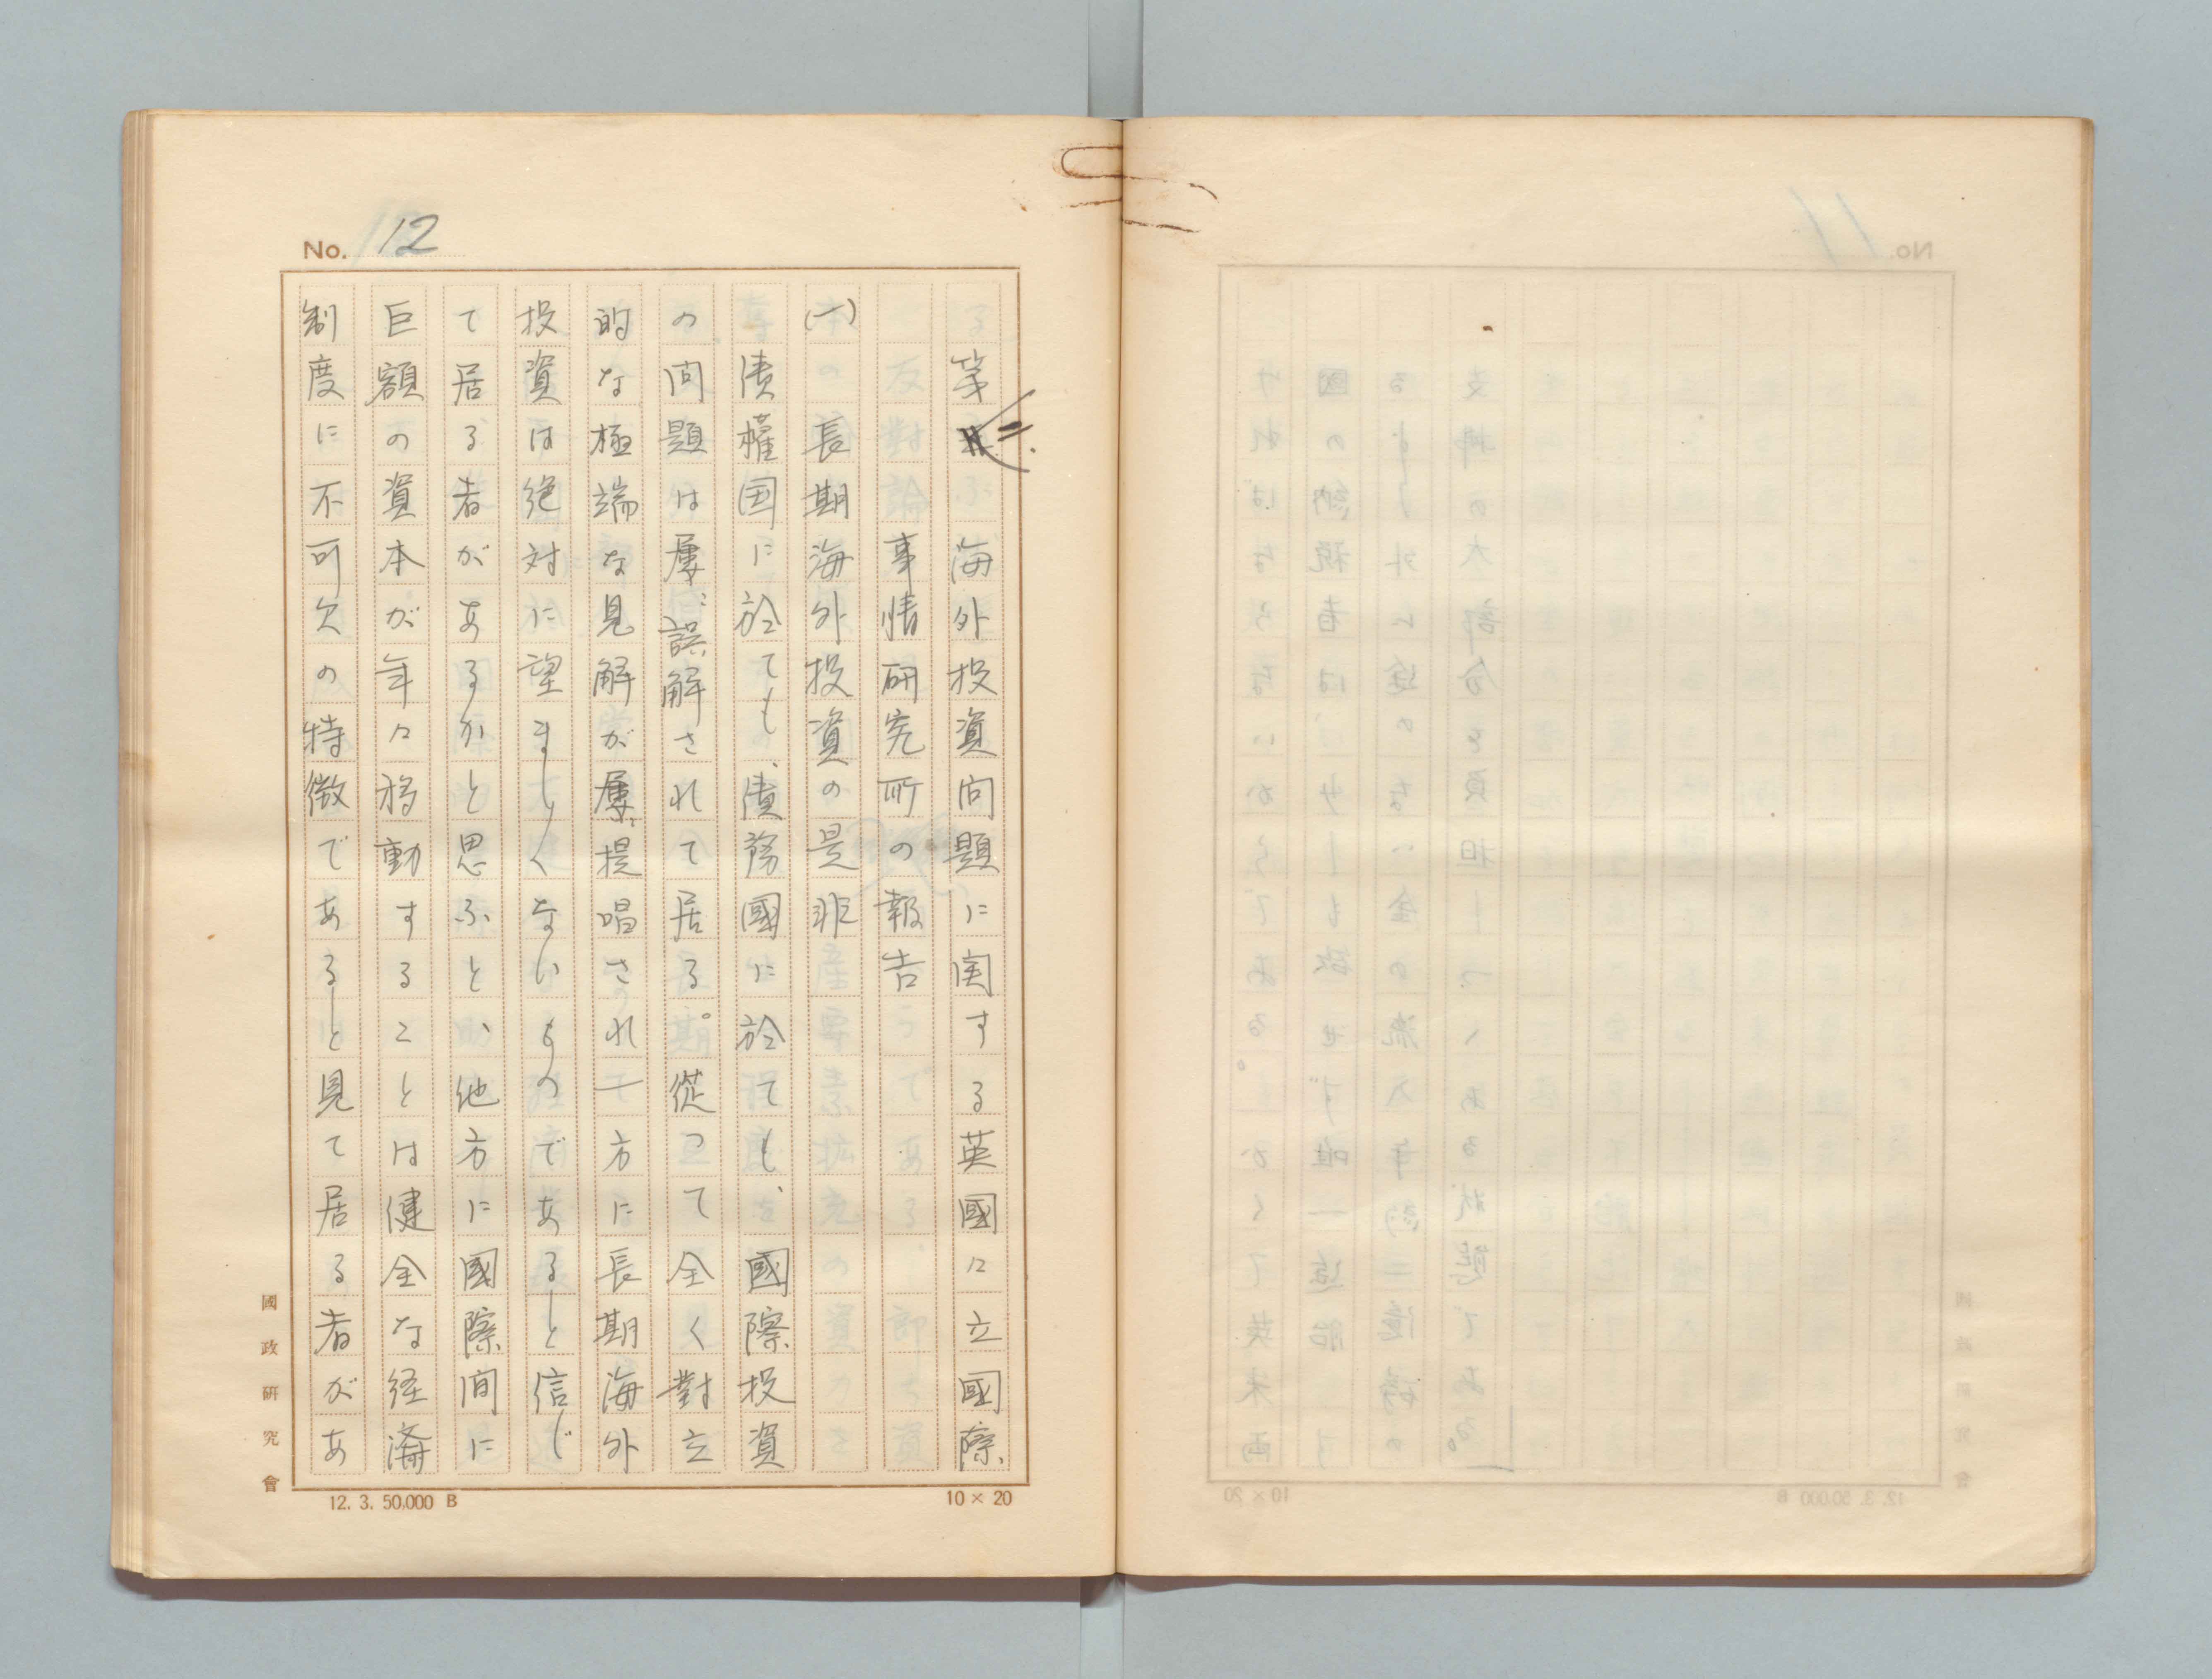 No. 12
第二 海外投資問題に関する英國々立國際
事情研究所の報告
(一) 長期海外投資の是非
債権国に於ても、債務國に於ても、國際投資
の問題は屡〻誤解されて居る。従つて全く對立
的な極端な見解が屡〻提唱され一方に長期海外
投資は絶対に望ましくないものであると信じ
て居る者があるかと思ふと、他方に國際間に
巨額の資本が年々移動することは健全な経済
制度に不可欠の特徴であると見て居る者があ
國政研究會
12. 3. 50,000 B
10 × 20